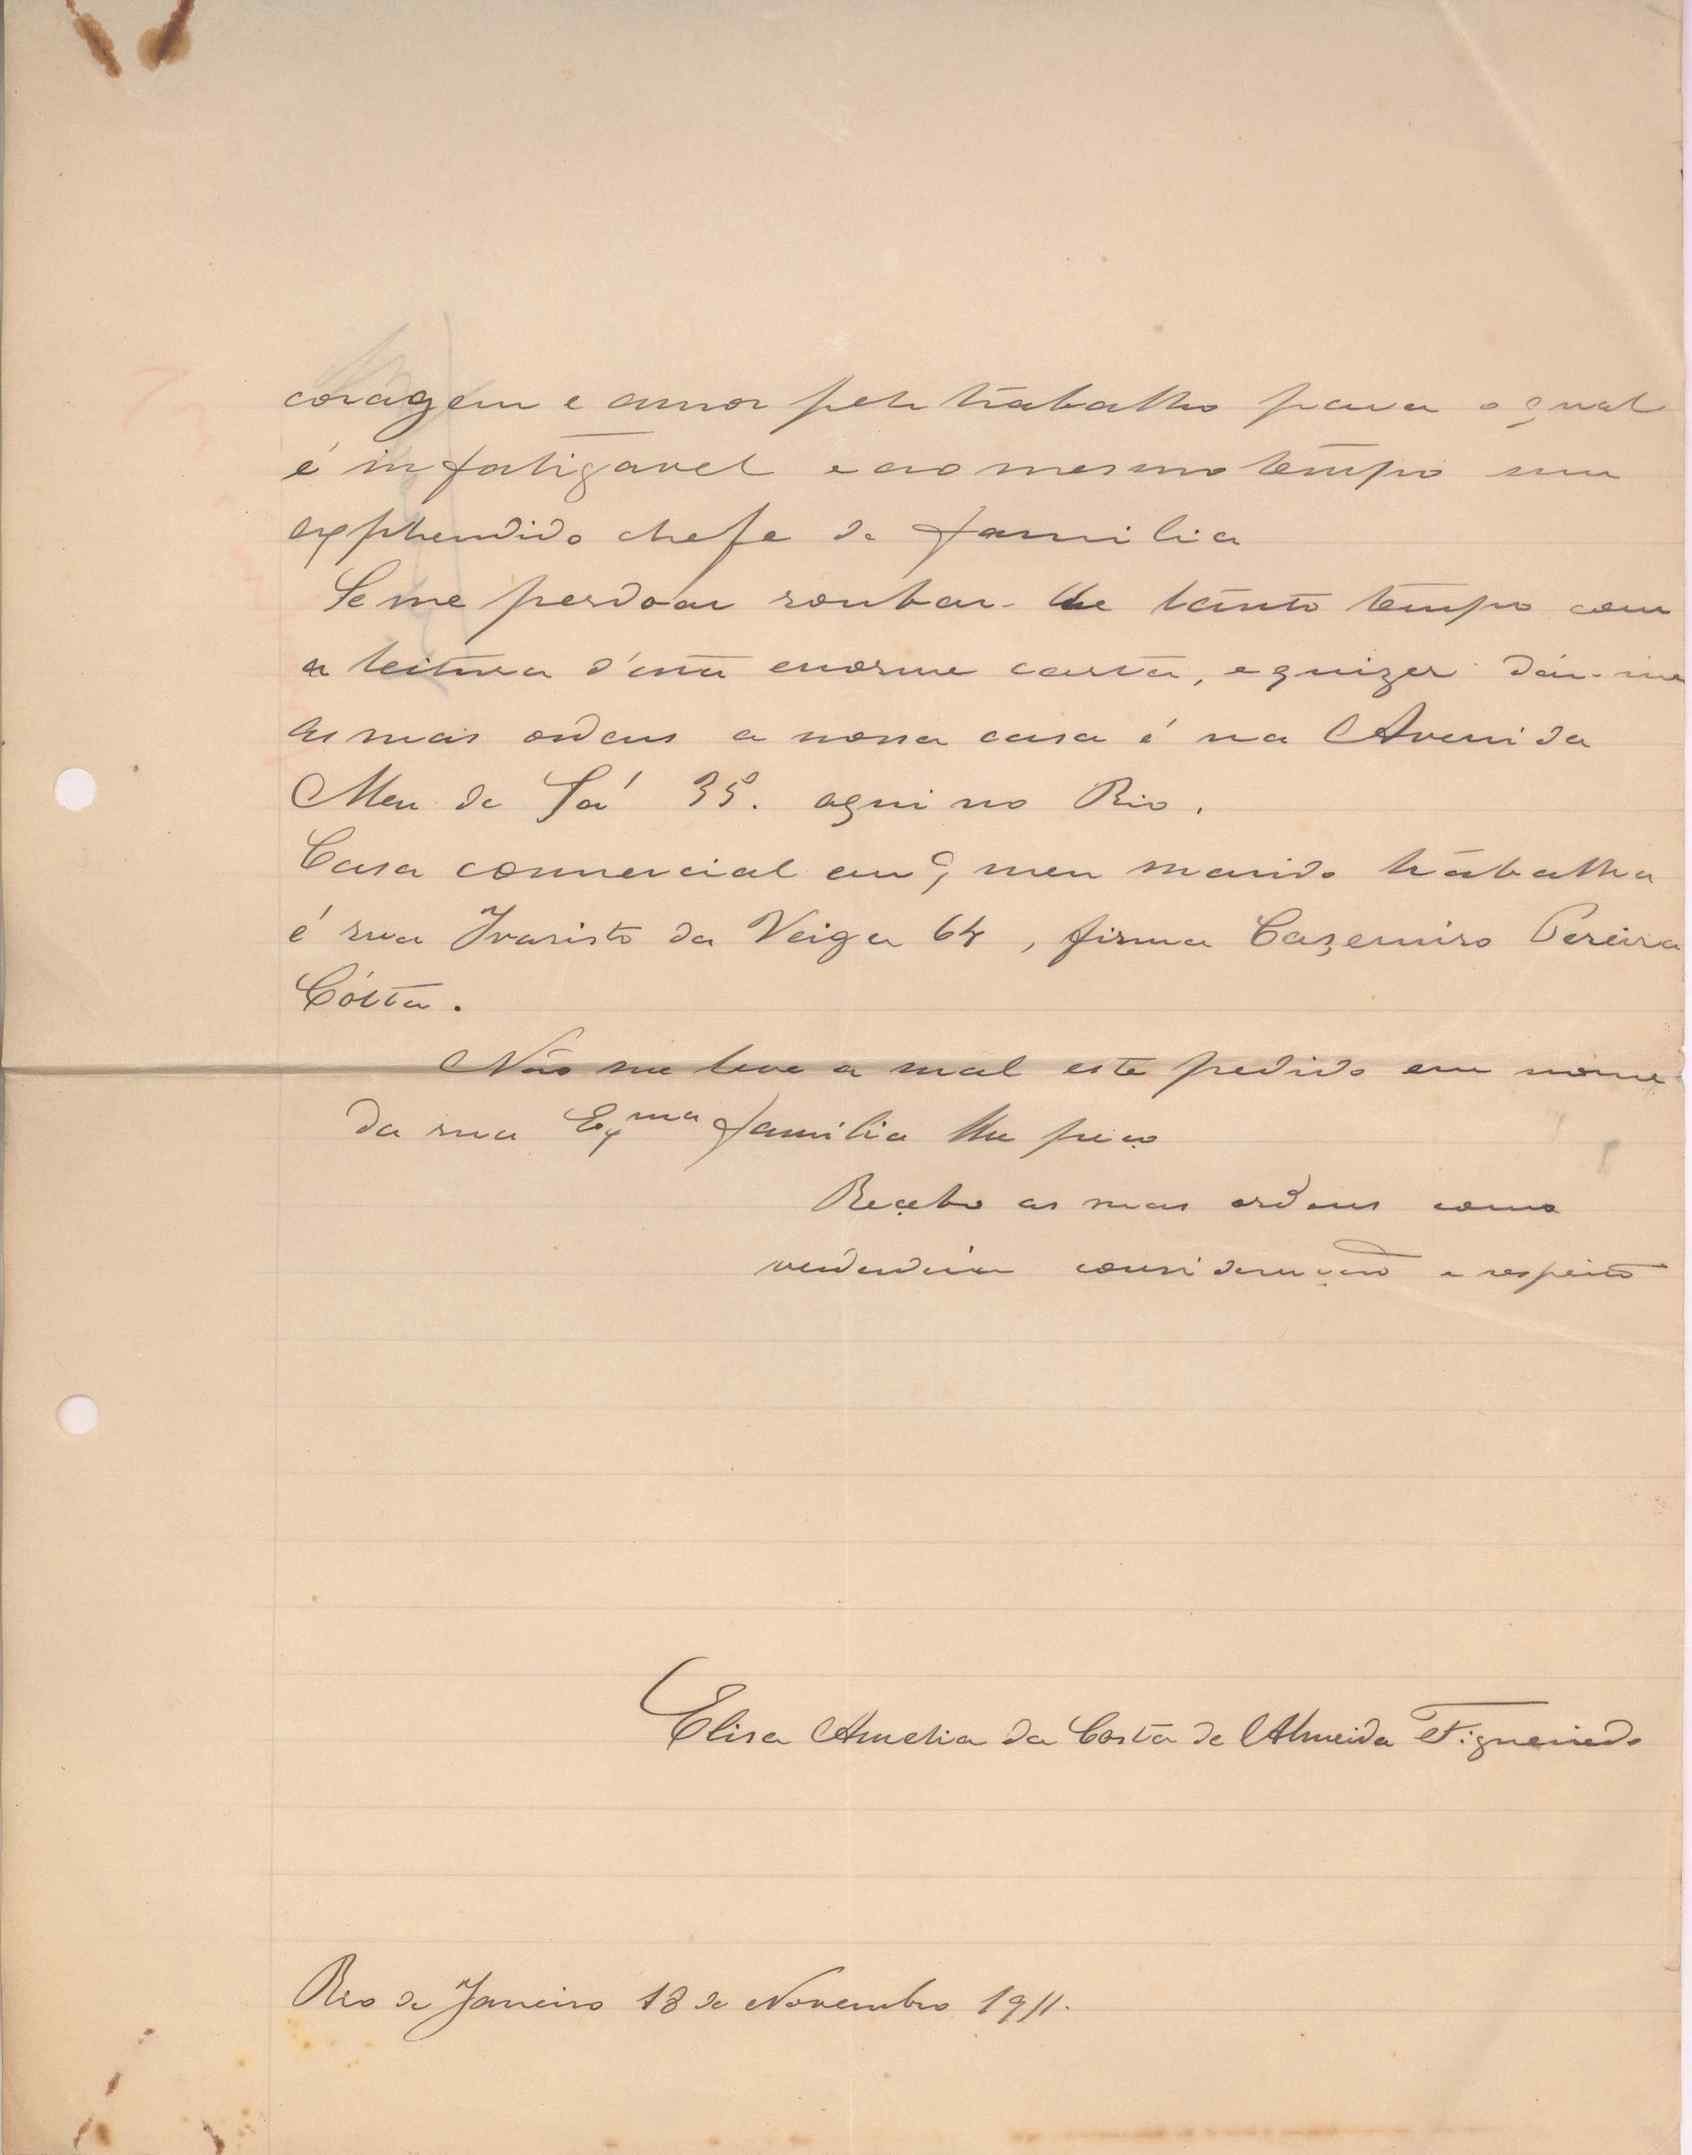 coragem e amor pelo trabalho para o qual
é infatigavel e ao mesmo tempo um
explendido chefe de familia
Se me perdoar roubar-lhe tanto tempo com
a leitura d'esta enorme carta, e quizer dár-me
as suas ordens a nossa casa é na Avenida
Mem de Sá 35. aqui no Rio.
Casa commercial em q̃ meu marido trabalha
é rua Ivaristo da Veiga 64, firma Cazemiro Pereira
Cótta.
Não me leve a mal este pedido em nome
da sua Exma familia lhe peço
Recebo as suas ordens como
verdadeira consideração e respeito
Elisa Amelia da Costa de Almeida Figueiredo
Rio de Janeiro 18 de Novembro 1911.